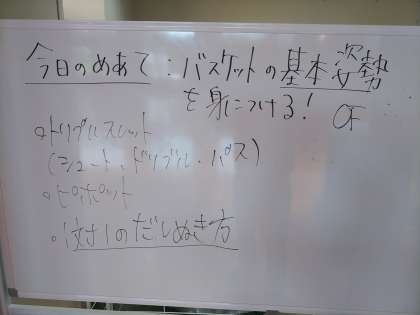 今日のめあて：バスケットの基本姿勢
を身につける！ OF
・トリプルスレット
（シュート、ドリブル・パス）
・ピボット
・1対1のだしぬき方